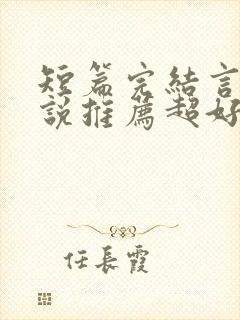 短篇完結言
說推薦超好
任長霞